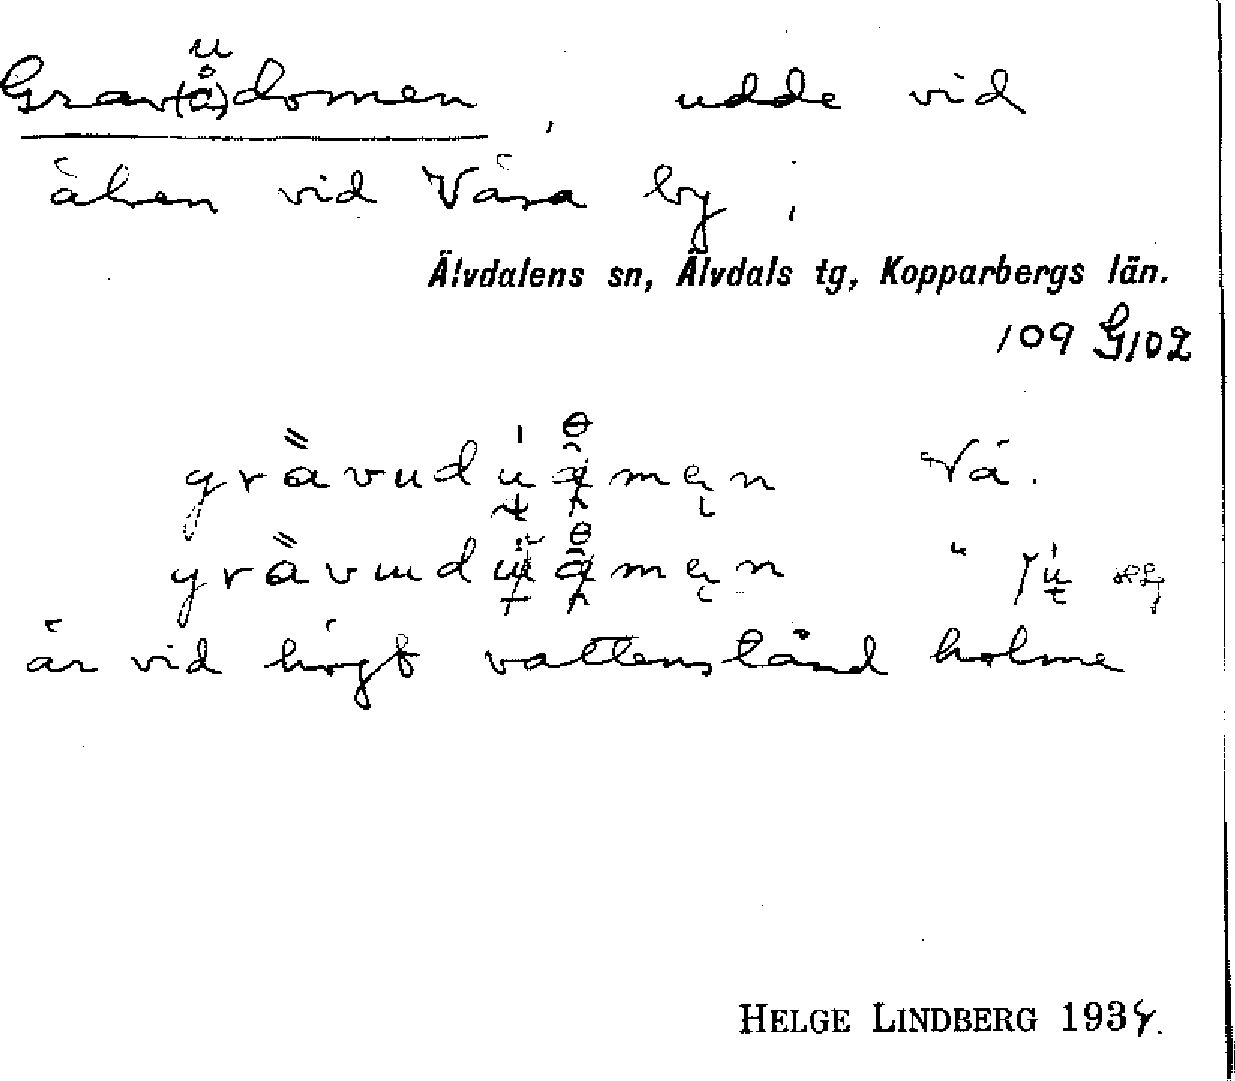 Grav(å)domen, udde vid
u
älven vid Våsa by;
Älvdalens sn, Älvdals tg, Kopparbergs län.
109 G102
grävudúåmen Vä.
grävudúåmen "
är vid högt vattenstånd holme
HELGE LINDBERG 1934.